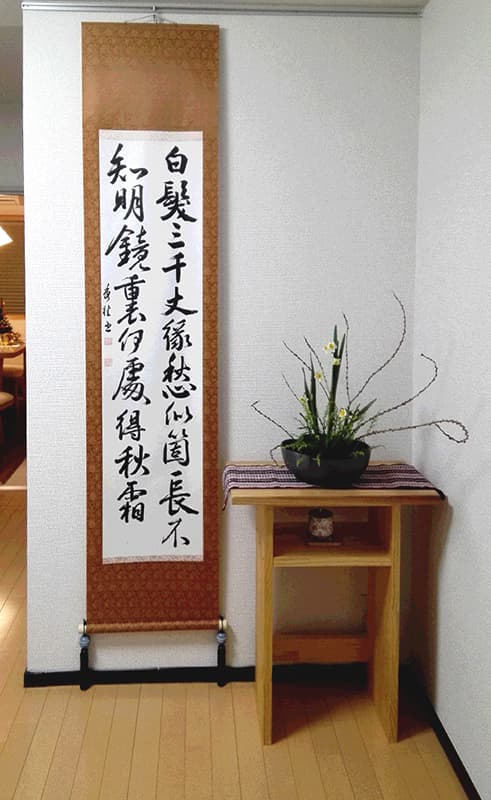 白髪三千丈縁愁似箇長不
知明鏡裏何處得秋霜